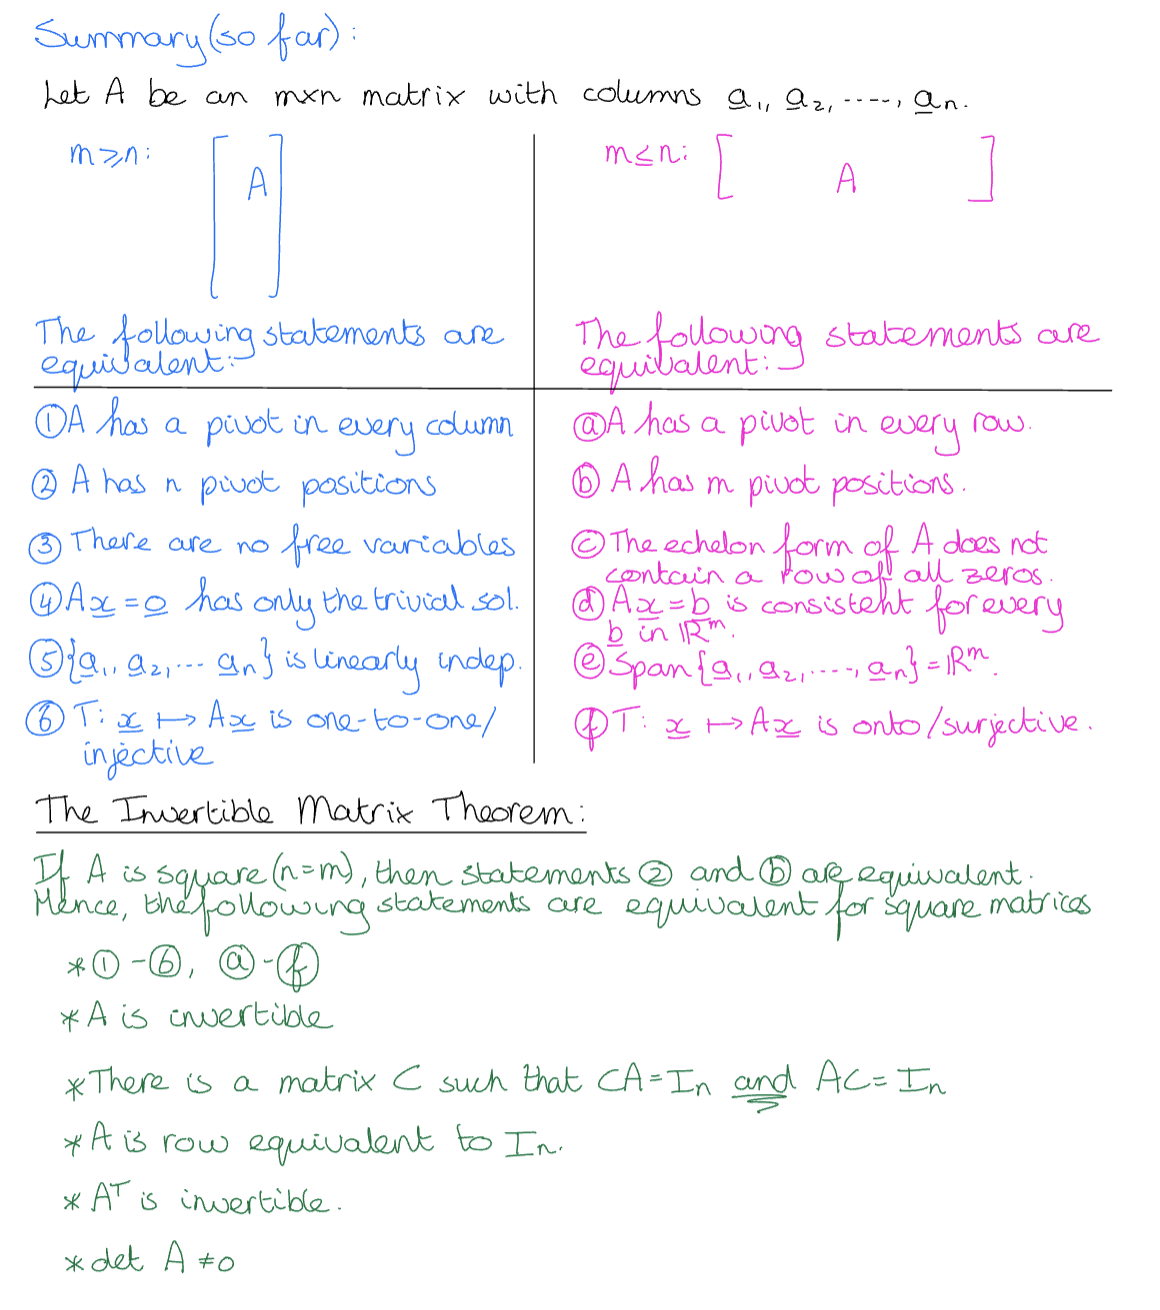 Summary (so far):
Let A be an m×n matrix with columns a₁, a₂, ----, aₙ.
m⩾n:
A
The following statements are
equivalent:-
① A has a pivot in every column
② A has n pivot positions
③ There are no free variables
④ Ax = 0 has only the trivial sol.
⑤ {a₁, a₂, ... aₙ} is linearly indep.
⑥ T: x ↦ Ax is one-to-one/
injective
m≤n:
A
The following statements are
equivalent:-
ⓐ A has a pivot in every row.
ⓑ A has m pivot positions.
ⓒ The echelon form of A does not
contain a row of all zeros.
ⓓ Ax = b is consistent for every
b in ℝᵐ.
ⓔ Span{a₁, a₂, ...., aₙ} = ℝᵐ.
ⓕ T: x ↦ Ax is onto/surjective.
The Invertible Matrix Theorem:
If A is square (n=m), then statements ② and ⓑ are equivalent.
Hence, the following statements are equivalent for square matrices
* ① - ⑥, ⓐ - ⓕ
* A is invertible
* There is a matrix C such that CA = Iₙ and AC = Iₙ
* A is row equivalent to Iₙ.
* Aᵀ is invertible.
* det A ≠ 0